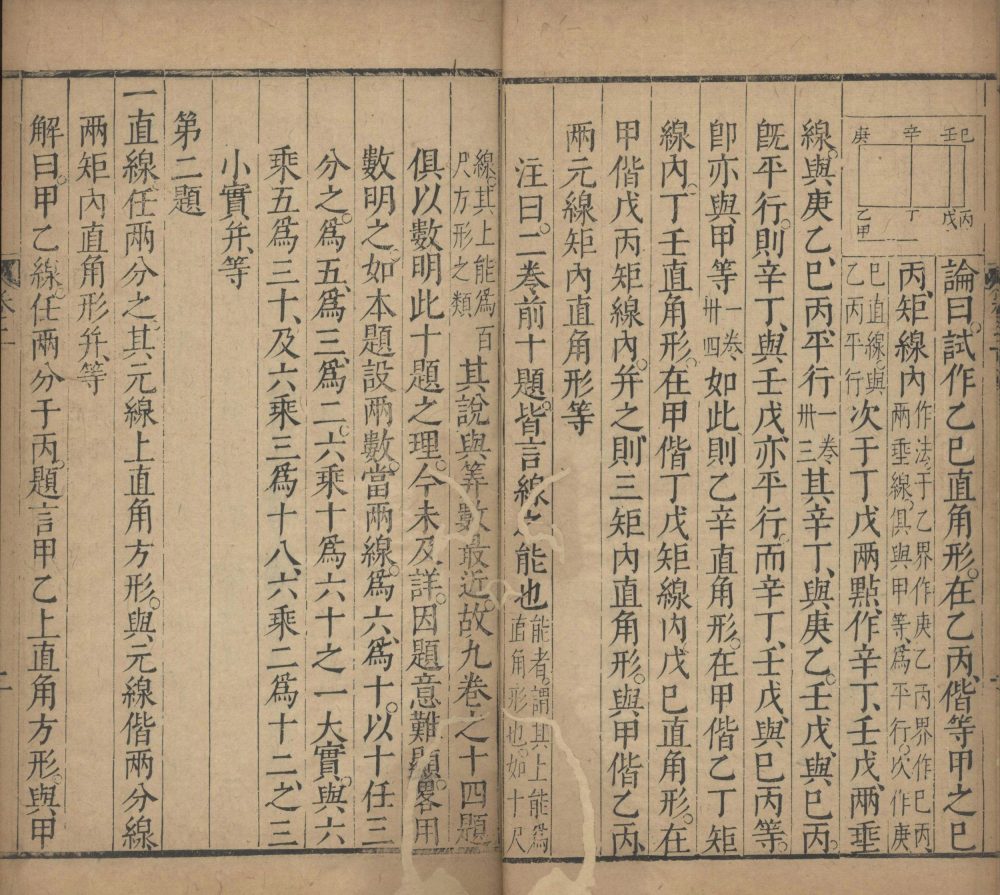 庚 辛 壬 巳
乙 丁 戊 丙
甲
論曰。試作乙巳直角形。在乙丙、偕等甲之巳
丙、矩線內作法。于乙界作庚乙丙界作巳丙
兩垂線。俱與甲等、爲平行。次作庚
巳直線與
乙丙平行次于丁戊兩點、作辛丁、壬戊、兩垂
線。與庚乙、巳丙、平行一卷
卅三其辛丁、與庚乙。壬戊、與巳丙。
旣平行。則辛丁、與壬戊、亦平行。而辛丁、壬戊、與巳丙等。
卽亦與甲等一卷
卅四如此則乙辛直角形。在甲偕乙丁矩
線內。丁壬直角形。在甲偕丁戊矩線內。戊巳直角形。在
甲偕戊丙矩線內。并之則三矩內直角形。與甲偕乙丙、
兩元線矩內直角形等
注曰。二卷前十題。皆言線之能也能者。謂其上能爲
直角形也。如十尺
線。其上能爲百
尺方形之類其說與筭數最近。故九卷之十四題
俱以數明此十題之理。今未及詳。因題意難顯。畧用
數明之。如本題設兩數。當兩線。爲六、爲十。以十任三
分之。爲五、爲三、爲二。六乘十爲六十之一大實。與六
乘五爲三十、及六乘三爲十八、六乘二爲十二、之三
小實并、等
第二題
一直線。任兩分之。其元線上直角方形。與元線偕兩分線
兩矩內直角形并、等
解曰。甲乙線。任兩分于丙。題言甲乙上直角方形。與甲
二